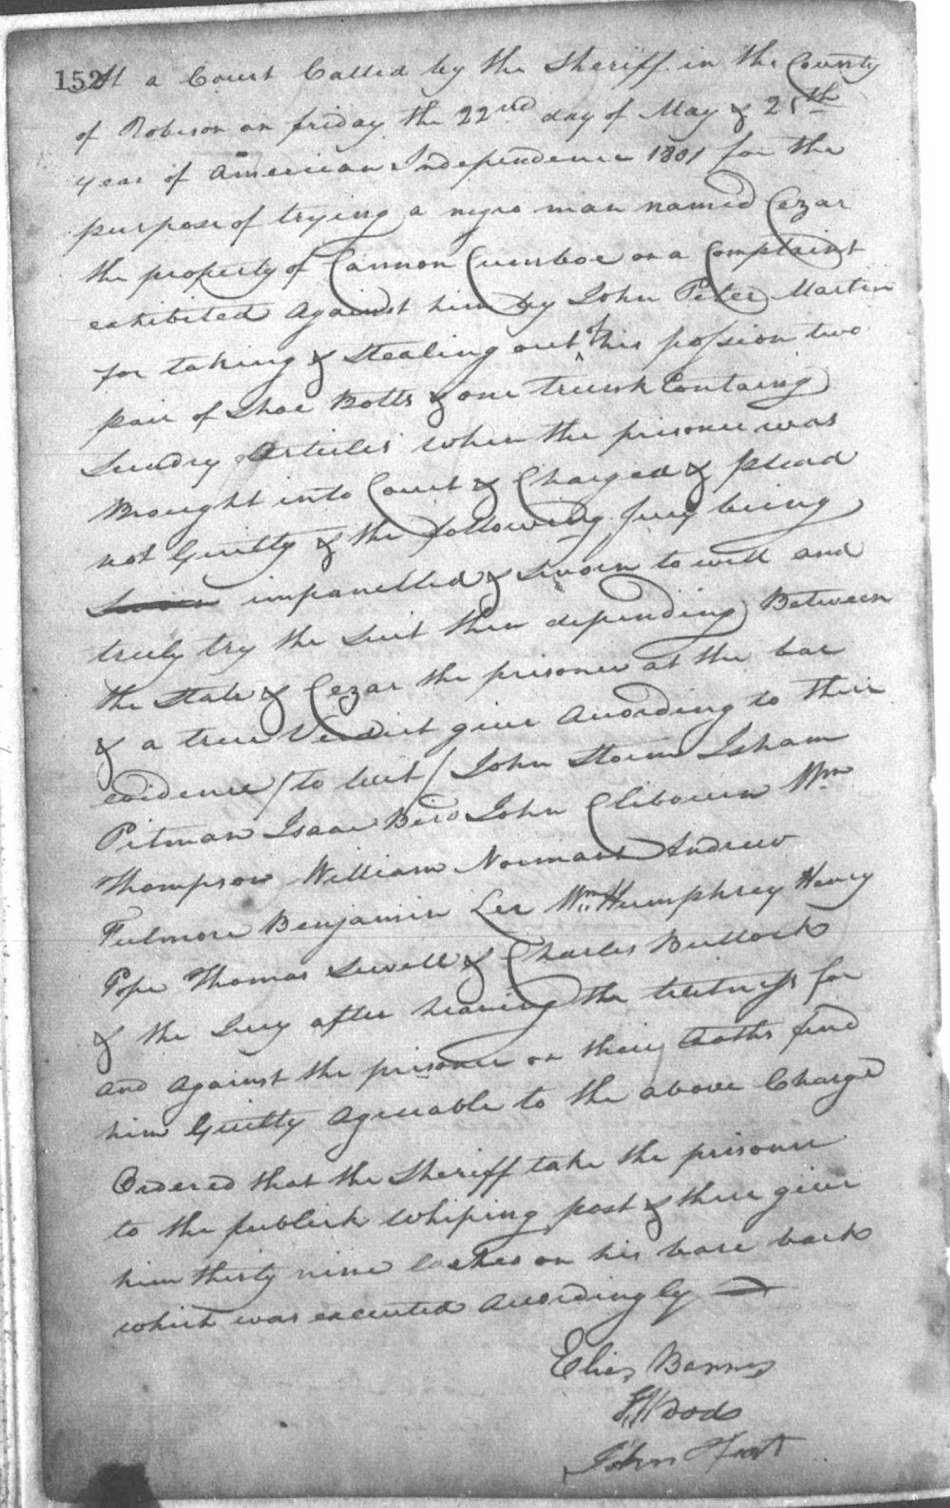 152
At a Court Called by the Sheriff in the County
of Robeson on friday the 22nd day of May & 25th
year of American Independence 1801 for the
purpose of trying a negro man named Cezar
the property of Cannon Cumboe on a Complaint
exhibited Against him by John Peter Martin
for taking & Stealing out of his possion two
pair of Shoe Botts & one trunk Containg
Sundry Articles when the prisoner was
Brought into Court & Charged & plead
not Guilty & the following Jury being
Sworn impanelled & Sworn to well and
truly try the suit then depending Between
the State & Cezar the prisoner at the bar
& a true Verdict give Acording to their
evidence / to wit / John Storm Isham
Pitman Isaac Bird John Clibourn Wm
Thompson William Normant Andrew
Fulmore Benjamin Lee Wm Humphrey Henry
Pope Thomas Sewell & Charles Bullock
& the Jury after hearing the wittness for
and Against the prisoner on their Oaths find
him Guilty Agreeable to the above Charge
Ordered that the Sheriff take the prisoner
to the publick whiping post & there give
him thirty nine lashes on his bare back
which was executed Acordingly
Elias Barnes
Wood
John